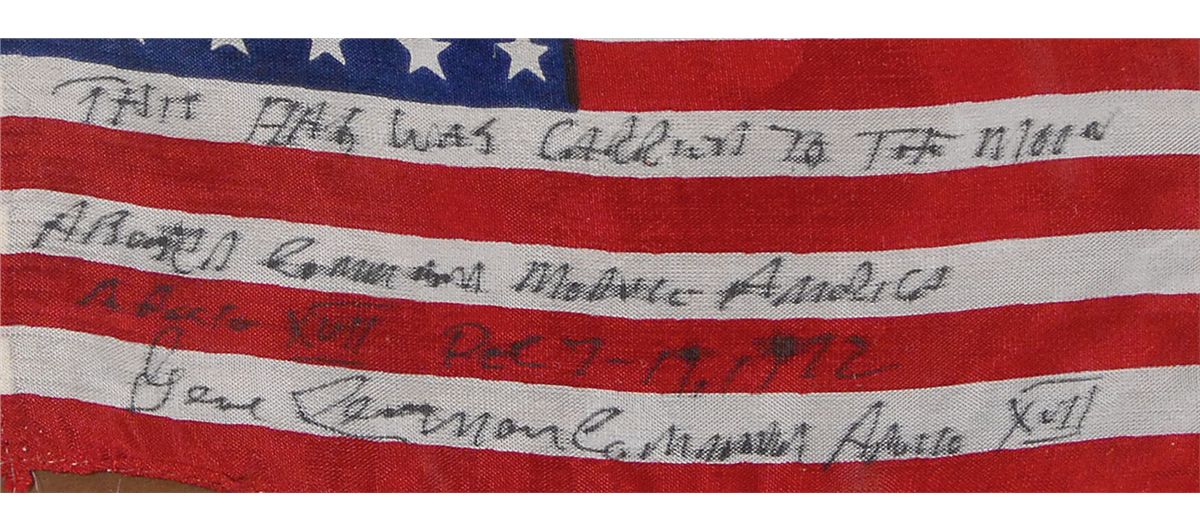 THIS FLAG WAS CARRIED TO THE MOON
ABOARD COMMAND MODULE AMERICA
APOLLO XVII DEC 7-19, 1972
Gene Cernan Commander Apollo XVII